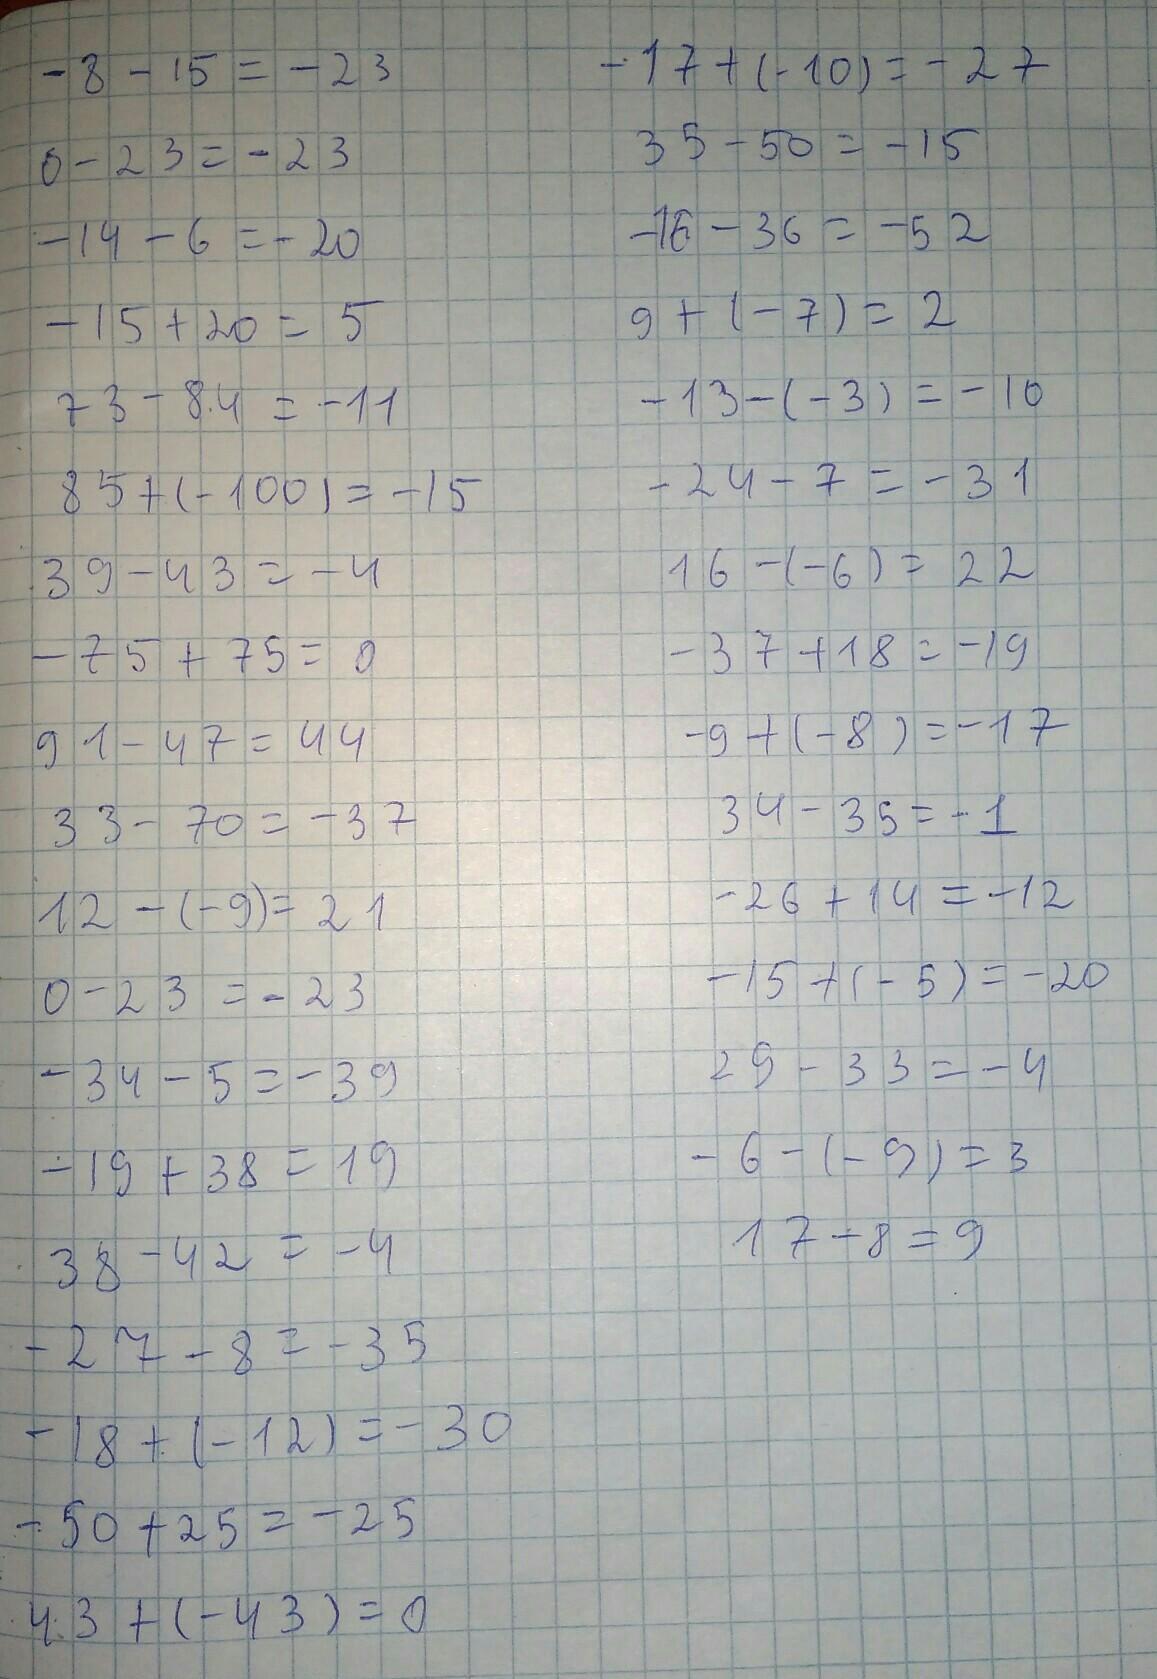 -8-15=-23
0-23=-23
-14-6=-20
-15+20=5
73-84=-11
85+(-100)=-15
39-43=-4
-75+75=0
91-47=44
33-70=-37
12-(-9)=21
0-23=-23
-34-5=-39
-19+38=19
38-42=-4
-27-8=-35
-18+(-12)=-30
-50+25=-25
43+(-43)=0
-17+(-10)=-27
35-50=-15
-16-36=-52
9+(-7)=2
-13-(-3)=-10
-24-7=-31
16-(-6)=22
-37+18=-19
-9+(-8)=-17
34-35=-1
-26+14=-12
-15+(-5)=-20
29-33=-4
-6-(-9)=3
17-8=9